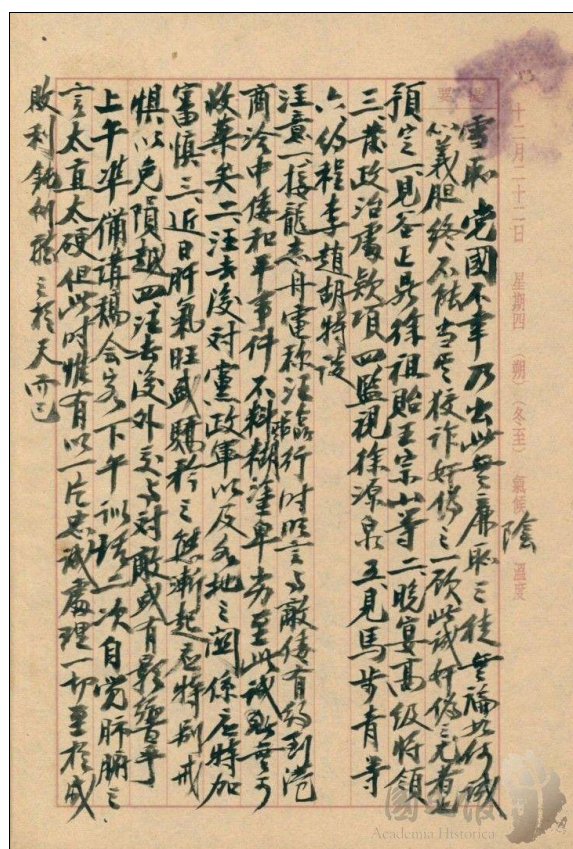 提要
十二月二十二日 星期四(朔)(冬至) 氣候 陰 溫度
雪恥 党國不幸乃出此無廉恥之徒無論如何誠
心義胆終不能當其狡詐奸偽之一顧此誠奸偽之尤者也
預定一見谷正鼎徐祖貽王宗山等二晚宴高級將領
三發政治處款項四監視徐源泉五見馬步青等
六約程李趙胡特談
注意一接龍志舟電称汪臨行時明言与敵倭有約到港
商洽中倭和平事件不料糊塗卑劣至此誠無可
收藥矣二汪去後对黨政軍以及各地之關係應特加
審慎三、近日肝氣旺盛驕矜之態漸起應特別戒
惧以免隕越四汪去後外交与对敵或有影響乎
上午準備講稿会客下午訓話二次自觉肺腑之
言太直太硬但此时惟有以一片忠誠處理一切至於成
敗利鈍則聽之於天而已
國史館
Academia Historica